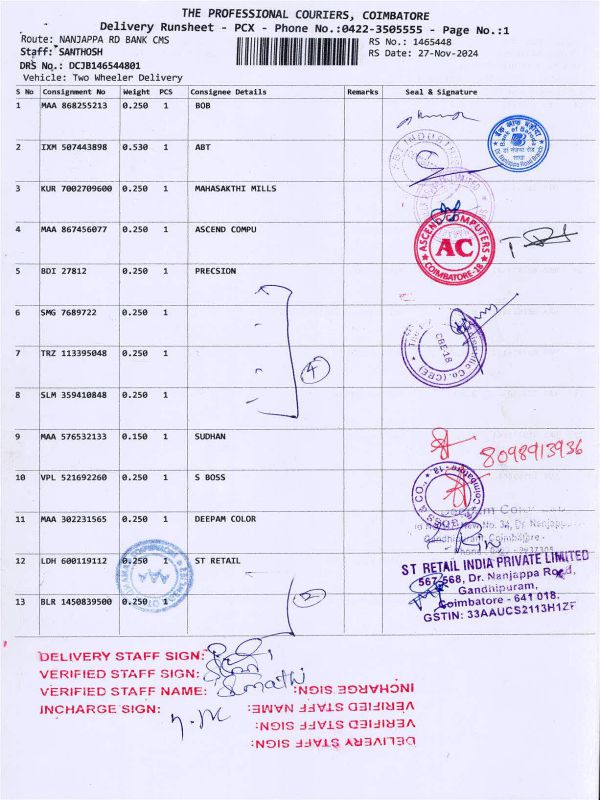 THE PROFESSIONAL COURIERS, COIMBATORE
Delivery Runsheet - PCX - Phone No.:0422-3505555 - Page No.:1
Route: NANJAPPA RD BANK CMS
RS No.: 1465448
Staff: SANTHOSH
RS Date: 27-Nov-2024
DRS No.: DCJB146544801
Vehicle: Two Wheeler Delivery
S No Consignment No Weight PCS Consignee Details Remarks Seal & Signature
1 MAA 868255213 0.250 1 BOB
2 IXM 507443898 0.530 1 ABT
3 KUR 7002709600 0.250 1 MAHASAKTHI MILLS
4 MAA 867456077 0.250 1 ASCEND COMPU
ASCEND COMPUTERS
AC
COIMBATORE-18
5 BDI 27812 0.250 1 PRECSION
6 SMG 7689722 0.250 1
7 TRZ 113395048 0.250 1
4
CBE-18
8 SLM 359410848 0.250 1
9 MAA 576532133 0.150 1 SUDHAN
8098913936
10 VPL 521692260 0.250 1 S BOSS
11 MAA 302231565 0.250 1 DEEPAM COLOR
12 LDH 600119112 0.250 1 ST RETAIL
ST RETAIL INDIA PRIVATE LIMITED
567-568, Dr. Nanjappa Road,
Gandhipuram,
Coimbatore - 641 018.
GSTIN: 33AAUCS2113H1ZF
13 BLR 1450839500 0.250 1
2
DELIVERY STAFF SIGN:
VERIFIED STAFF SIGN:
VERIFIED STAFF NAME:
INCHARGE SIGN:
INCHARGE SIGN:
VERIFIED STAFF NAME:
VERIFIED STAFF SIGN:
DELIVERY STAFF SIGN: